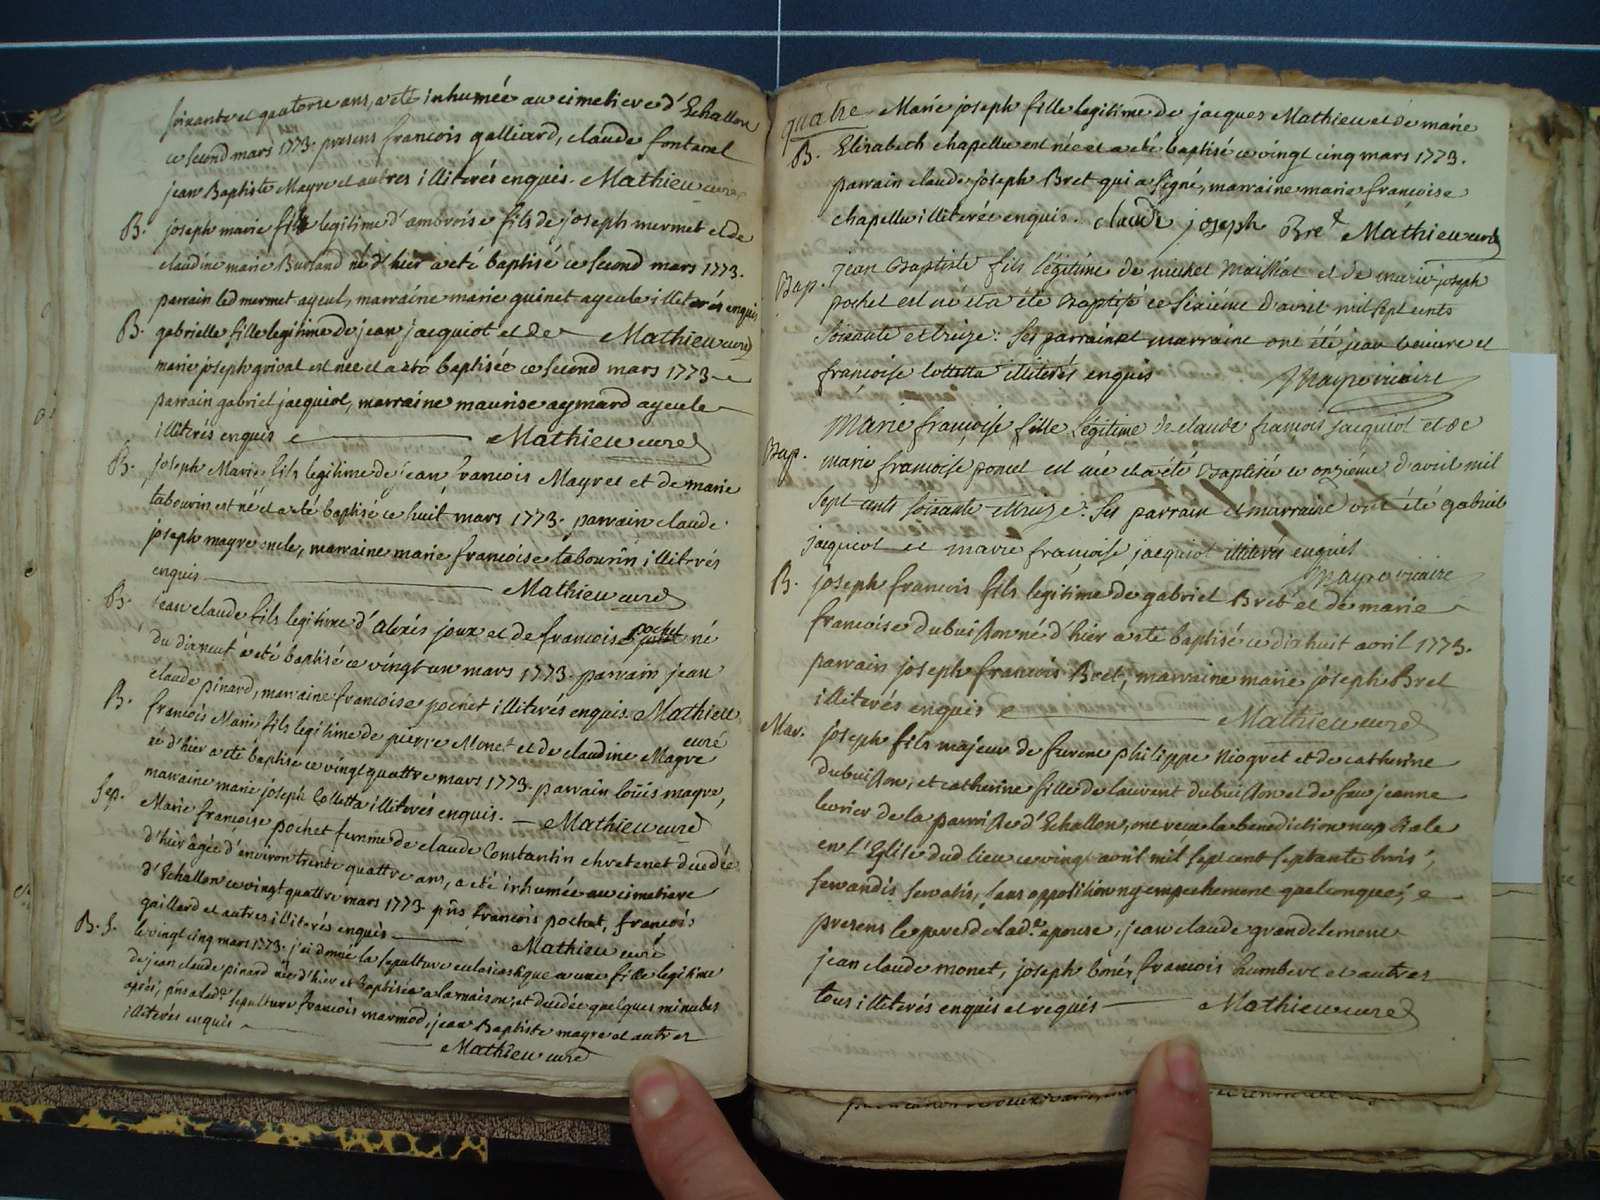 soixante et quatorze ans, a eté inhumée au cimetiere d'Echallon
ce second mars 1773. presens françois galliard, claude fontanel
jean Baptiste Mayre et autres illiterés enquis. Mathieu curé
B. joseph marie fils legitime d'ambroise fils de joseph mermet et de
claudine marie Burland né d'hier a eté baptisé ce second mars 1773.
parrain led mermet ayeul, marraine marie guinet ayeule illiterés enquis
B. gabrielle fille legitime de jean jacquiot et de Mathieu curé
marie joseph grivat est née et a eté baptisée ce second mars 1773
parrain gabriel jacquiot, marraine maurise aymard ayeule
illiterés enquis Mathieu curé
B. joseph Marie fils legitime de jean francois Mayret et de marie
tabourin est né et a eté baptisé ce huit mars 1773. parrain claude
joseph mayre oncle, marraine marie francoise tabourin, illiterés
enquis Mathieu curé
B. jean claude fils legitime d'alexis joux et de francoise pochet né
du dixneuf a eté baptisé ce vingt un mars 1773. parrain jean
claude pinard, marraine francoise pochet illiterés enquis. Mathieu
curé
B. francois Marie fils legitime de pierre Monet et de claudine Mayre
né d'hier a eté baptisé ce vingt quattre mars 1773. parrain loüis mayre,
marraine marie joseph Colletta illiterés enquis. Mathieu curé
Sep. Marie françoise pochet femme de claude Constantin chretenet decedée
d'hier âgée d'environ trente quattre ans, a eté inhumée au cimetiere
d'Echallon ce vingt quattre mars 1773. pñs françois pochet, françois
gaillard et autres illiterés enquis Mathieu curé
B. S. le vingt cinq mars 1773. j'ai donné la sepulture eclesiastique a une fille legitime
de jean claude pinard née d'hier et baptisée a la maison, et decedée quelques minutes
après, pñs a lade sepulture francois marmod, jean Baptiste mayre et autres
illiterés enquis
Mathieu curé
quatre Marie joseph fille legitime de jacques Mathieu et de marie
B. Elizabeth chapellu est née et a eté baptisé ce vingt cinq mars 1773.
parrain claude joseph Bret qui a signé, marraine marie françoise
chapellu illiterée enquis. claude joseph Bret Mathieu curé
Bap. jean Baptiste fils légitime de michel Maillat et de marie joseph
pochet est né et a été Baptisé ce sixieme d'avril mil sept cents
soixante et treize. Ses parrain et marraine ont été jean et
françoise Colletta illiterés enquis Mayre vicaire
Bap. Marie françoise fille légitime de claude françois jacquiot et de
marie françoise poncet est née et a été Baptisée ce onzième d'avril mil
sept cents soixante et treize. Ses parrain et marraine ont été gabriel
jacquiot et marie françoise jacquiot illiterés enquis
Mayre vicaire
B. joseph francois fils légitime de gabriel Bret et de marie
francoise dubuisson né d'hier a eté baptisé ce dix huit avril 1773.
parrain joseph francois Bret, marraine marie joseph Bret
illiterés enquis Mathieu curé
Mar. joseph fils majeur de furent philippe Niogret et de catherine
dubuisson, et catherine fille de laurent dubuisson et de feu jeanne
levrier de la parroisse d'Echallon, ont reçu la benediction nuptiale
en l'Eglise dud lieu ce vingt avril mil sept cent septante trois,
servandis servatis, sans opposition ny empechement quelconque,
presens le pere de lade epouse, jean claude grandclement
jean claude monet, joseph boné, francois humbert et autres
tous illiterés enquis et requis Mathieu curé